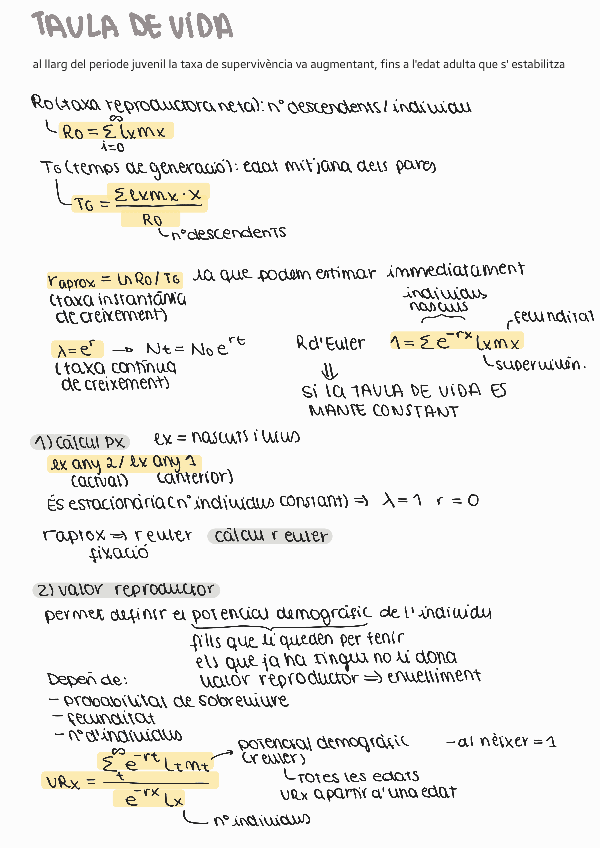 TAULA DE VIDA
al llarg del periode juvenil la taxa de supervivència va augmentant, fins a l'edat adulta que s' estabilitza
R0 (taxa reproductora neta): nº descendents / individu
R0 = ∞Σi=0 lxmx
TG (temps de generació): edat mitjana dels pares
TG = Σlxmx · x / R0
nº descendents
raprox = ln R0 / TG la que podem estimar immediatament
(taxa instantània de creixement)
individus nascuts
fecunditat
λ = e^r → Nt = N0 e^rt
R d'Euler 1 = Σ e^-rx lxmx
(taxa contínua de creixement)
supervivèn.
⇓
SI LA TAULA DE VIDA ES
MANTE CONSTANT
1) Càlcul px ex = nascuts i vius
ex any 2 / ex any 1
(actual) (anterior)
És estacionària (nº individus constant) ⇒ λ = 1 r = 0
raprox ⇒ r euler càlcul r euler
fixació
2) valor reproductor
permet definir el potencial demogràfic de l'individu
fills que li queden per tenir
els que ja ha tingui no li dona
Depèn de: valor reproductor ⇒ envelliment
- probabilitat de sobreviure
- fecunditat
- nº d'individus
VRx = ∞Σt e^-rt lt mt / e^-rx lx
potencial demogràfic - al nèixer = 1
(r euler)
totes les edats
VRx a partir d'una edat
nº individus